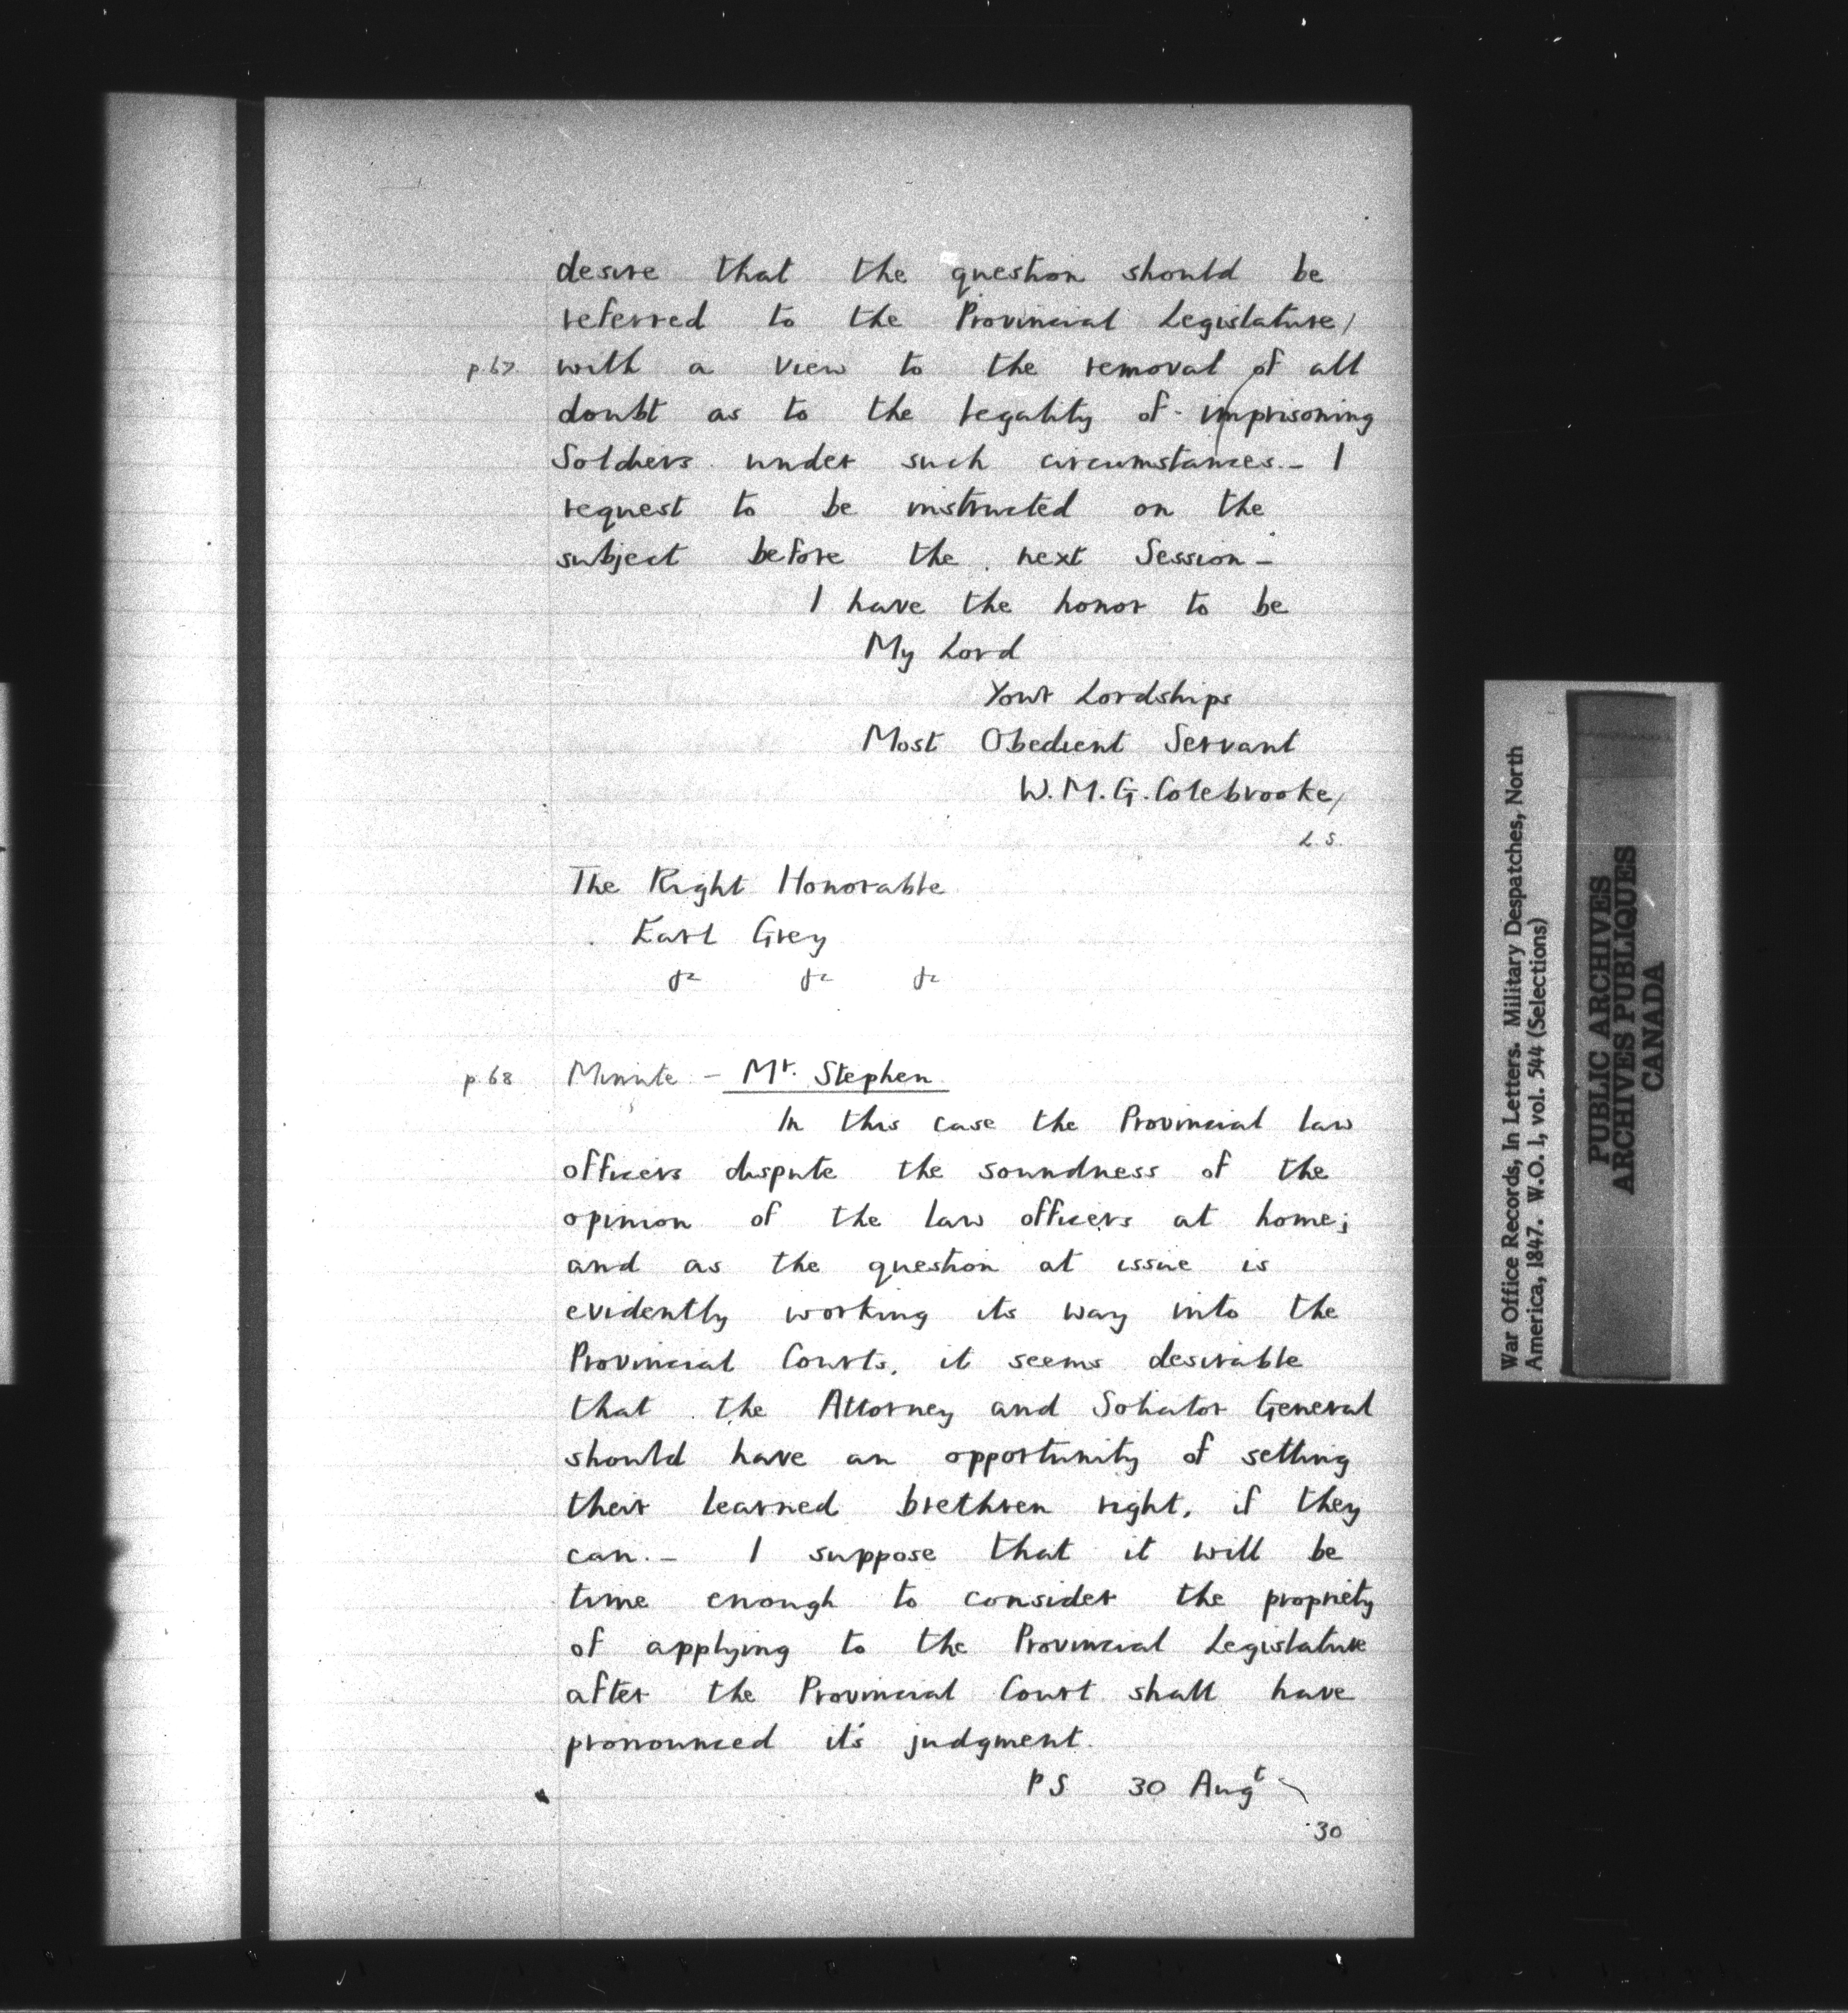 desire that the question should be
referred to the Provincial Legislature/
p.67. with a view to the removal of all
doubt as to the legality of imprisoning
Soldiers under such circumstances. - I
request to be instructed on the
subject before the next Session -
I have the honor to be
My Lord
Your Lordships
Most Obedient Servant
W.M.G. Colebrooke/
L.S.
The Right Honorable
Earl Grey
&c &c &c
p.68 Minute - Mr. Stephen
In this case the Provincial law
officers dispute the soundness of the
opinion of the law officers at home;
and as the question at issue is
evidently working its way into the
Provincial Courts, it seems desirable
that the Attorney and Solicitor General
should have an opportunity of setting
their learned brethren right, if they
can. - I suppose that it will be
time enough to consider the propriety
of applying to the Provincial Legislature
after the Provincial Court shall have
pronounced it's judgment.
PS 30 Augt
30
War Office Records, In Letters. Military Despatches, North
America, 1847. W.O. 1, vol. 544 (Selections)
PUBLIC ARCHIVES
ARCHIVES PUBLIQUES
CANADA